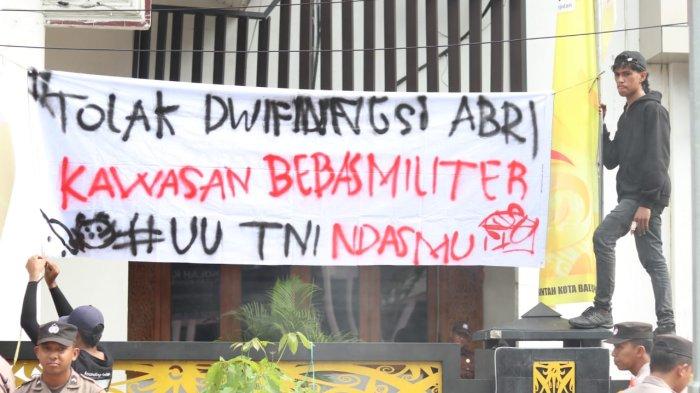 #TOLAK DWIFUNFGSI ABRI
KAWASAN BEBAS MILITER
#UU TNI NDASMU
NTAH KOTA BAL